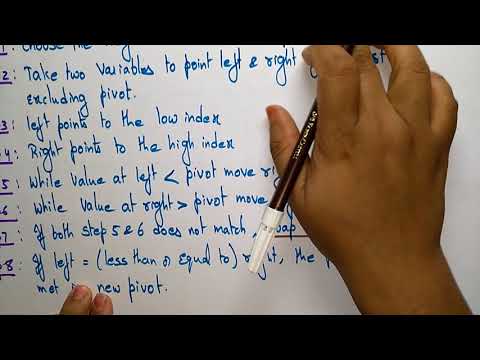 1: Choose the
2: Take two Variables to point left & right
excluding pivot.
3: left points to the low index
4: Right points to the high index
5 While Value at left < pivot move
6: While Value at right > pivot move
7 If both step 5 & 6 does not match,
08: If left = (less than or equal to) right, the
met new pivot.